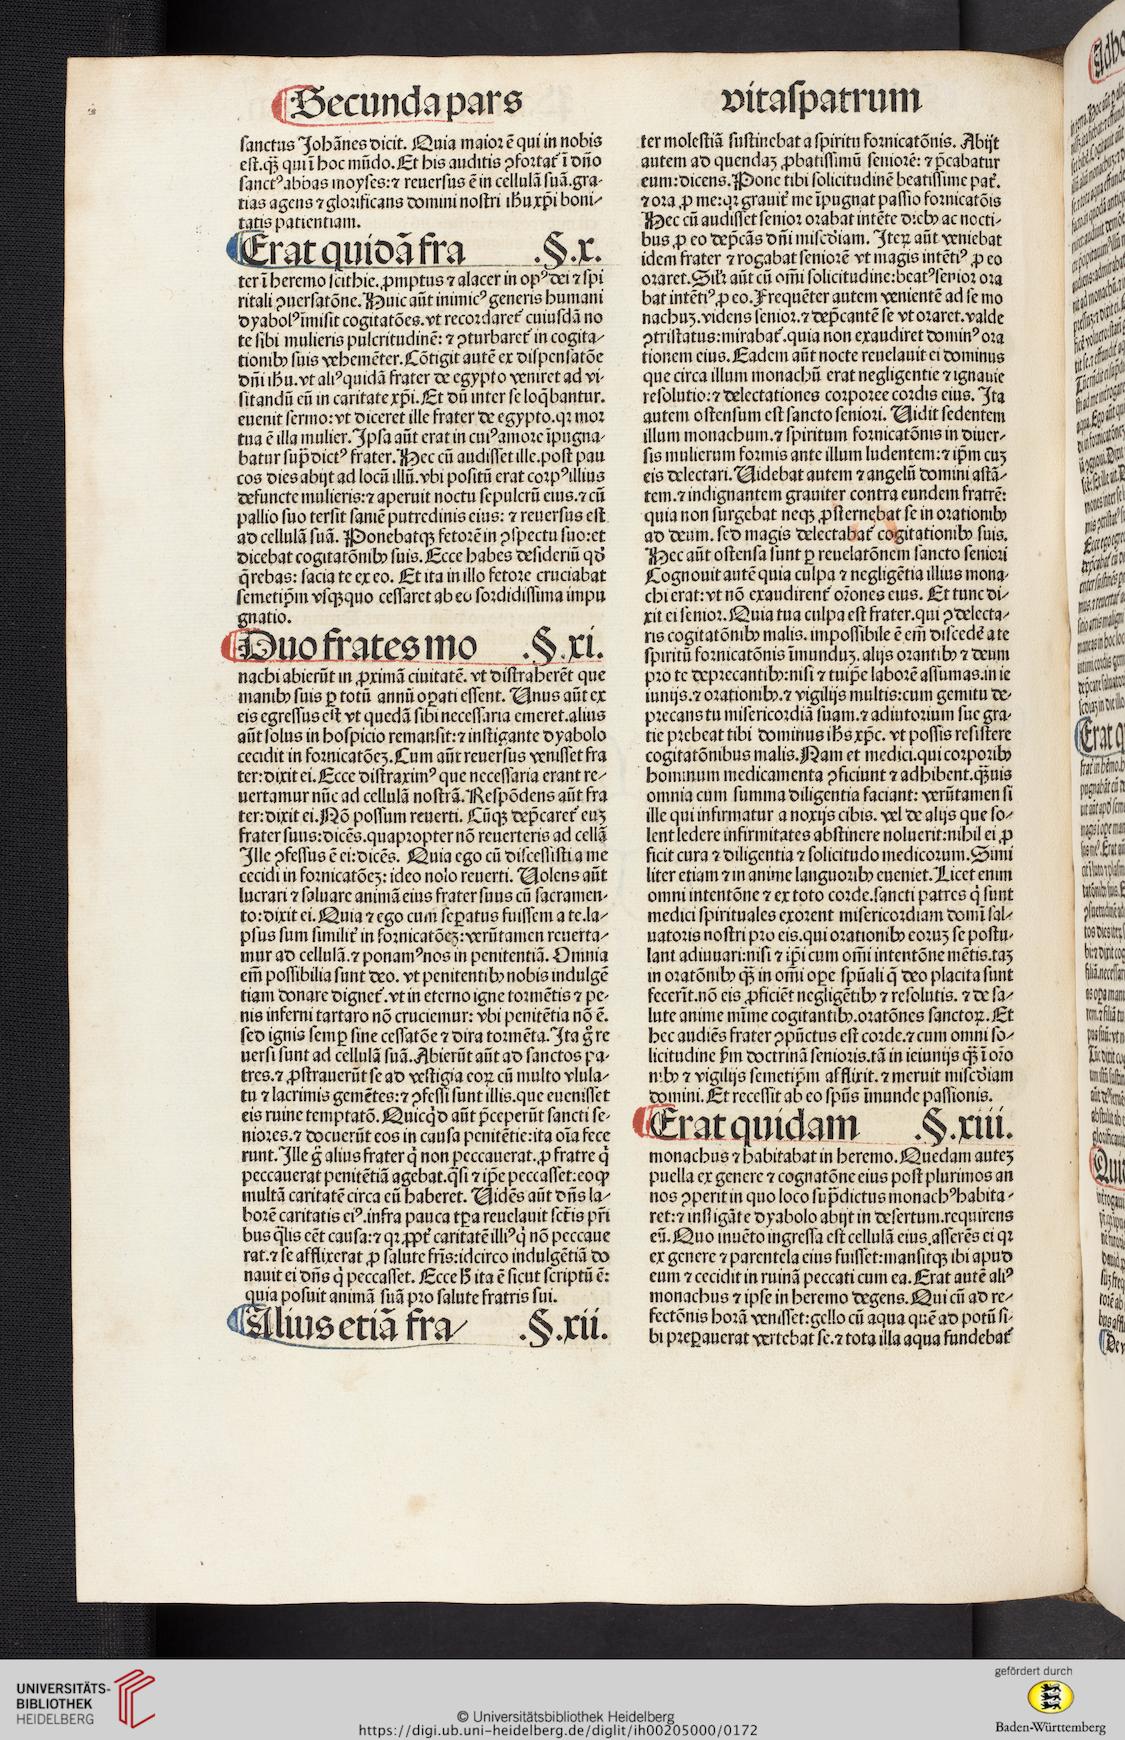 Secunda pars
sanctus Johãnes dicit. Quia maior ē qui in nobis
est. qȝ qui ī hoc mũdo. Et his auditis ꝯfortat᷑ ī dño
sanctꝰ abbas moyses: ⁊ reuersus ē in cellulã suã. gra⸗
tias agens ⁊ glorificans domini nostri ihũ xp̃i boni⸗
tatis patientiam.
Erat quidã fra .§.x.
ter ī heremo scithie. ꝓmptus ⁊ alacer in opꝰ dei ⁊ sp̃i
ritali ꝯuersatõne. Huic aũt inimicꝰ generis humani
dyabolꝰ īmisit cogitatões. vt recordaret᷑ cuiusdã no
te sibi mulieris pulcritudinē: ⁊ ꝯturbaret᷑ in cogita⸗
tionibȝ suis vehemẽter. Cõtigit autẽ ex dispensatõe
dñi ihũ. vt aliꝰ quidã frater de egypto veniret ad vi⸗
sitandũ eũ in caritate xp̃i. Et dũ inter se loq̃bantur.
euenit sermo: vt diceret ille frater de egypto. qꝛ mor
tua ē illa mulier. Ipsa aũt erat in cuiꝰ amore īpugna⸗
batur sup̃dictꝰ frater. Hec cũ audisset ille. post pau
cos dies abijt ad locũ illũ. vbi positũ erat corpꝰ illius
defuncte mulieris: ⁊ aperuit noctu sepulcrũ eius. ⁊ cũ
pallio suo tersit saniẽ putredinis eius: ⁊ reuersus est
ad cellulã suã. Ponebatqȝ fetorẽ in ꝯspectu suo: et
dicebat cogitatõnibȝ suis. Ecce habes desideriũ qð
q̃rebas: sacia te ex eo. Et ita in illo fetore cruciabat
semetip̃m vsqȝquo cessaret ab eo sordidissima impu
gnatio.
Duo frates mo .§.xi.
nachi abierũt in ꝓximã ciuitatẽ. vt distraherẽt que
manibȝ suis ꝑ totũ annũ oꝑati essent. Unus aũt ex
eis egressus est vt quedã sibi necessaria emeret. alius
aũt solus in hospicio remansit: ⁊ instigante dyabolo
cecidit in fornicatõeȝ. Cum aũt reuersus venisset fra
ter: dixit ei. Ecce distraximꝰ que necessaria erant re⸗
uertamur nũc ad cellulã nostrã. Respõdens aũt fra
ter: dixit ei. Nõ possum reuerti. Cũqȝ dep̃caret᷑ euȝ
frater suus: dicẽs. quapropter nõ reuerteris ad cellã
Ille ꝯfessus ē ei: dicẽs. Quia ego cũ discessisti a me
cecidi in fornicatõeȝ: ideo nolo reuerti. Uolens aũt
lucrari ⁊ saluare animã eius frater suus cũ sacramen⸗
to: dixit ei. Quia ⁊ ego cum seꝑatus fuissem a te. la⸗
psus sum similit᷑ in fornicatõeȝ: verũtamen reuerta⸗
mur ad cellulã. ⁊ ponamꝰ nos in penitentiã. Omnia
em̃ possibilia sunt deo. vt penitentibȝ nobis indulgẽ
tiam donare dignet᷑. vt in eterno igne tormẽtis ⁊ pe⸗
nis inferni tartaro nõ cruciemur: vbi penitẽtia nõ ē.
sed ignis semꝑ sine cessatõe ⁊ dira tormẽta. Ita g̃ re
uersi sunt ad cellulã suã. Abierũt aũt ad sanctos pa⸗
tres. ⁊ ꝓstrauerũt se ad vestigia eoꝝ cũ multo vlula⸗
tu ⁊ lacrimis gemẽtes: ⁊ ꝯfessi sunt illis. que euenisset
eis ruine temptatõ. Quicq̃d aũt p̃ceperũt sancti se⸗
niores. ⁊ docuerũt eos in causa penitẽtie: ita oĩa fece
runt. Ille g̃ alius frater q̃ non peccauerat. ꝓ fratre q̃
peccauerat penitẽtiã agebat. q̃si ⁊ ip̃e peccasset: eoqȝ
multã caritatẽ circa eũ haberet. Uidẽs aũt dñs la⸗
borẽ caritatis eiꝰ. infra pauca tꝑa reuelauit sct̃is pr̃i
bus q̃lis eẽt causa: ⁊ qꝛ ꝓpt᷑ caritatẽ illiꝰ q̃ nõ peccaue
rat. ⁊ se afflixerat ꝓ salute fr̃is: idcirco indulgẽtiã do
nauit ei dñs q̃ peccasset. Ecce ꝉ ita ē sicut scriptũ ē:
quia posuit animã suã pro salute fratris sui.
Alius etiã fra⸗ .§.xii.
vitaspatrum
ter molestiã sustinebat a spiritu fornicatõnis. Abijt
autem ad quendaȝ ꝓbatissimũ seniorẽ: ⁊ p̃cabatur
eum: dicens. Pone tibi solicitudinẽ beatissime pat᷑.
⁊ ora ꝓ me: qꝛ grauit᷑ me īpugnat passio fornicatõis
Hec cũ audisset senior orabat intẽte diebȝ ac nocti⸗
bus ꝓ eo dep̃cãs dñi misc̃diam. Iteꝝ aũt veniebat
idem frater ⁊ rogabat seniorẽ vt magis intẽtiꝰ ꝓ eo
oraret. Silꝛ aũt cũ om̃i solicitudine: beatꝰ senior ora
bat intẽtiꝰ ꝓ eo. Frequẽter autem venientẽ ad se mo
nachuȝ. videns senior. ⁊ dep̃cantẽ se vt oraret. valde
ꝯtristatus: mirabat᷑. quia non exaudiret dominꝰ ora
tionem eius. Eadem aũt nocte reuelauit ei dominus
que circa illum monachũ erat negligentie ⁊ ignauie
resolutio: ⁊ delectationes corporee cordis eius. Ita
autem ostensum est sancto seniori. Uidit sedentem
illum monachum. ⁊ spiritum fornicatõnis in diuer⸗
sis mulierum formis ante illum ludentem: ⁊ ip̃m cuȝ
eis delectari. Uidebat autem ⁊ angelũ domini astã⸗
tem. ⁊ indignantem grauiter contra eundem fratrẽ:
quia non surgebat neqȝ ꝓsternebat se in orationibȝ
ad deum. sed magis delectabat᷑ cogitationibȝ suis.
Hec aũt ostensa sunt ꝑ reuelatõnem sancto seniori
Cognouit autẽ quia culpa ⁊ negligẽtia illius mona⸗
chi erat: vt nõ exaudirent᷑ or̃ones eius. Et tunc di⸗
xit ei senior. Quia tua culpa est frater. qui ꝯdelecta⸗
ris cogitatõnibȝ malis. impossibile ē em̃ discedẽ a te
spiritũ fornicatõnis īmunduȝ. alijs orantibȝ ⁊ deum
pro te deprecantibȝ: nisi ⁊ tuip̃e laborẽ assumas. in ie
iunijs. ⁊ orationibȝ. ⁊ vigilijs multis: cum gemitu de⸗
precans tu misericordiã suam. ⁊ adiutorium sue gra⸗
tie prebeat tibi dominus ihs̃ xp̃c. vt possis resistere
cogitatõnibus malis. Nam et medici. qui corporibȝ
hominum medicamenta ꝯficiunt ⁊ adhibent. qȝuis
omnia cum summa diligentia faciant: verũtamen si
ille qui infirmatur a noxijs cibis. vel de alijs que so⸗
lent ledere infirmitates abstinere noluerit: nihil ei ꝓ
ficit cura ⁊ diligentia ⁊ solicitudo medicorum. Simi
liter etiam ⁊ in anime languoribȝ eueniet. Licet enim
omni intentõne ⁊ ex toto corde. sancti patres q̃ sunt
medici spirituales exorent misericordiam domĩ sal⸗
uatoris nostri pro eis. qui orationibȝ eoruȝ se postu⸗
lant adiuuari: nisi ⁊ ip̃i cum om̃i intentõne mẽtis. taȝ
in oratõnibȝ qȝ in om̃i oꝑe spũali q̃ deo placita sunt
fecerĩt. nõ eis ꝓficiẽt negligẽtibȝ ⁊ resolutis. ⁊ de sa⸗
lute anime mĩme cogitantibȝ. oratões sanctoꝝ. Et
hec audiẽs frater ꝯpũctus est corde. ⁊ cum omni so⸗
licitudine ẜm doctrinã senioris. tã in ieiunijs qȝ ī oro
nibȝ ⁊ vigilijs semetip̃m afflixit. ⁊ meruit misc̃diam
domini. Et recessit ab eo spũs īmunde passionis.
Erat quidam .§.xiii.
monachus ⁊ habitabat in heremo. Quedam auteȝ
puella ex genere ⁊ cognatõne eius post plurimos an
nos ꝯperit in quo loco sup̃dictus monachꝰ habita⸗
ret: ⁊ instigãte dyabolo abijt in desertum. requirens
eũ. Quo inuẽto ingressa est cellulã eius. asserẽs ei qꝛ
ex genere ⁊ parentela eius fuisset: mansitqȝ ibi apud
eum ⁊ cecidit in ruinã peccati cum ea. Erat autẽ aliꝰ
monachus ⁊ ipse in heremo degens. Qui cũ ad re⸗
fectõnis horã venisset: gello cũ aqua quẽ ad potũ si⸗
bi preꝑauerat vertebat se. ⁊ tota illa aqua fundebat᷑
UNIVERSITÄTS-
BIBLIOTHEK
HEIDELBERG
© Universitätsbibliothek Heidelberg
https://digi.ub.uni-heidelberg.de/diglit/ih00205000/0172
gefördert durch
Baden-Württemberg